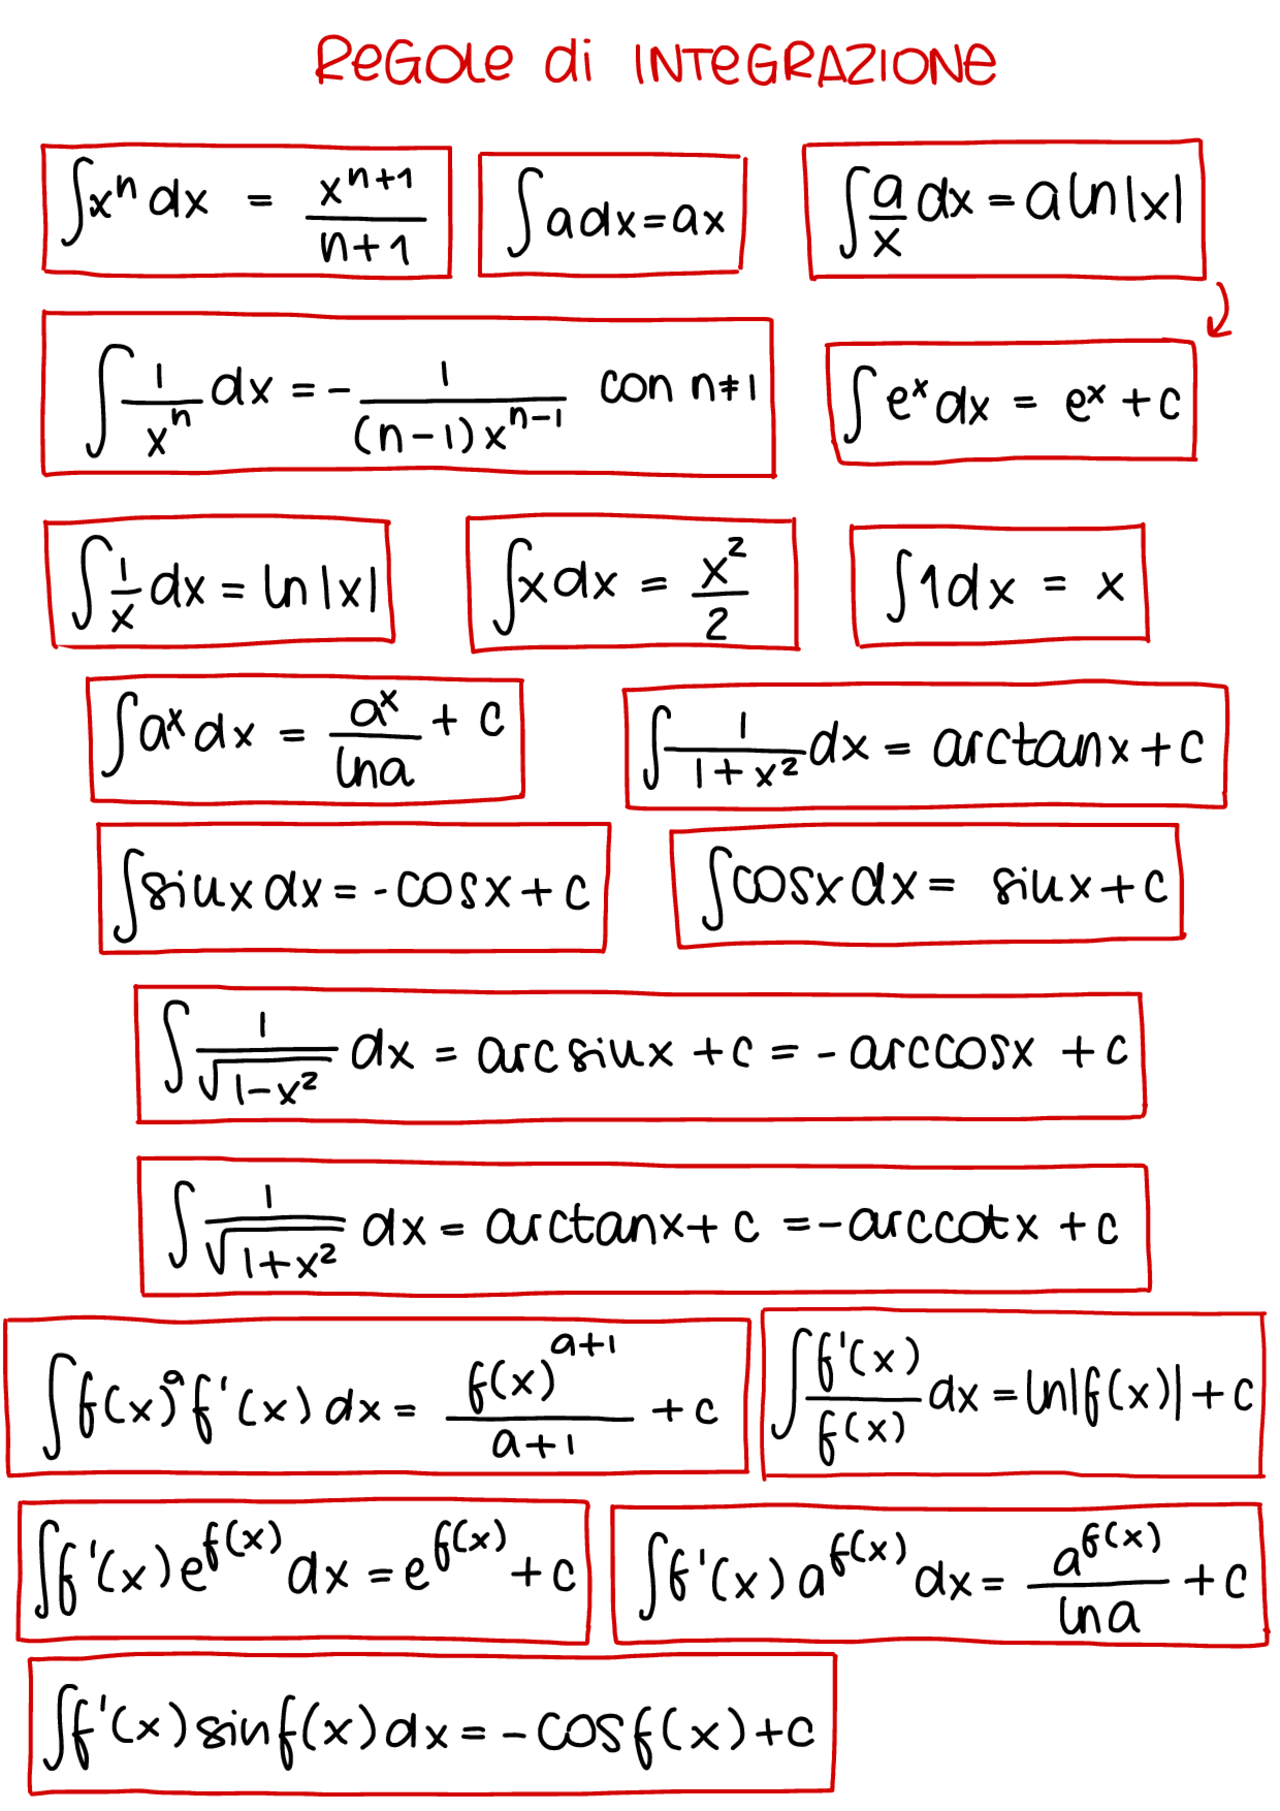 ReGole di INTeGRAZIONe
∫xⁿ dx = xⁿ⁺¹/(n+1)   ∫adx=ax   ∫a/x dx = a ln|x|
∫1/xⁿ dx = - 1/((n-1)xⁿ⁻¹) con n≠1   ∫eˣ dx = eˣ + c
∫1/x dx = ln|x|   ∫x dx = x²/2   ∫1dx = x
∫aˣ dx = aˣ/lna + c   ∫1/(1+x²) dx = arctanx + c
∫sinx dx = -cosx + c   ∫cosx dx = sinx + c
∫1/√(1-x²) dx = arcsinx + c = - arccosx + c
∫1/√(1+x²) dx = arctanx + c = - arccotx + c
∫f(x)ᵃ f'(x) dx = f(x)ᵃ⁺¹/(a+1) + c   ∫f'(x)/f(x) dx = ln|f(x)| + c
∫f'(x) e^f(x) dx = e^f(x) + c   ∫f'(x) a^f(x) dx = a^f(x)/lna + c
∫f'(x) sinf(x) dx = - cosf(x) + c